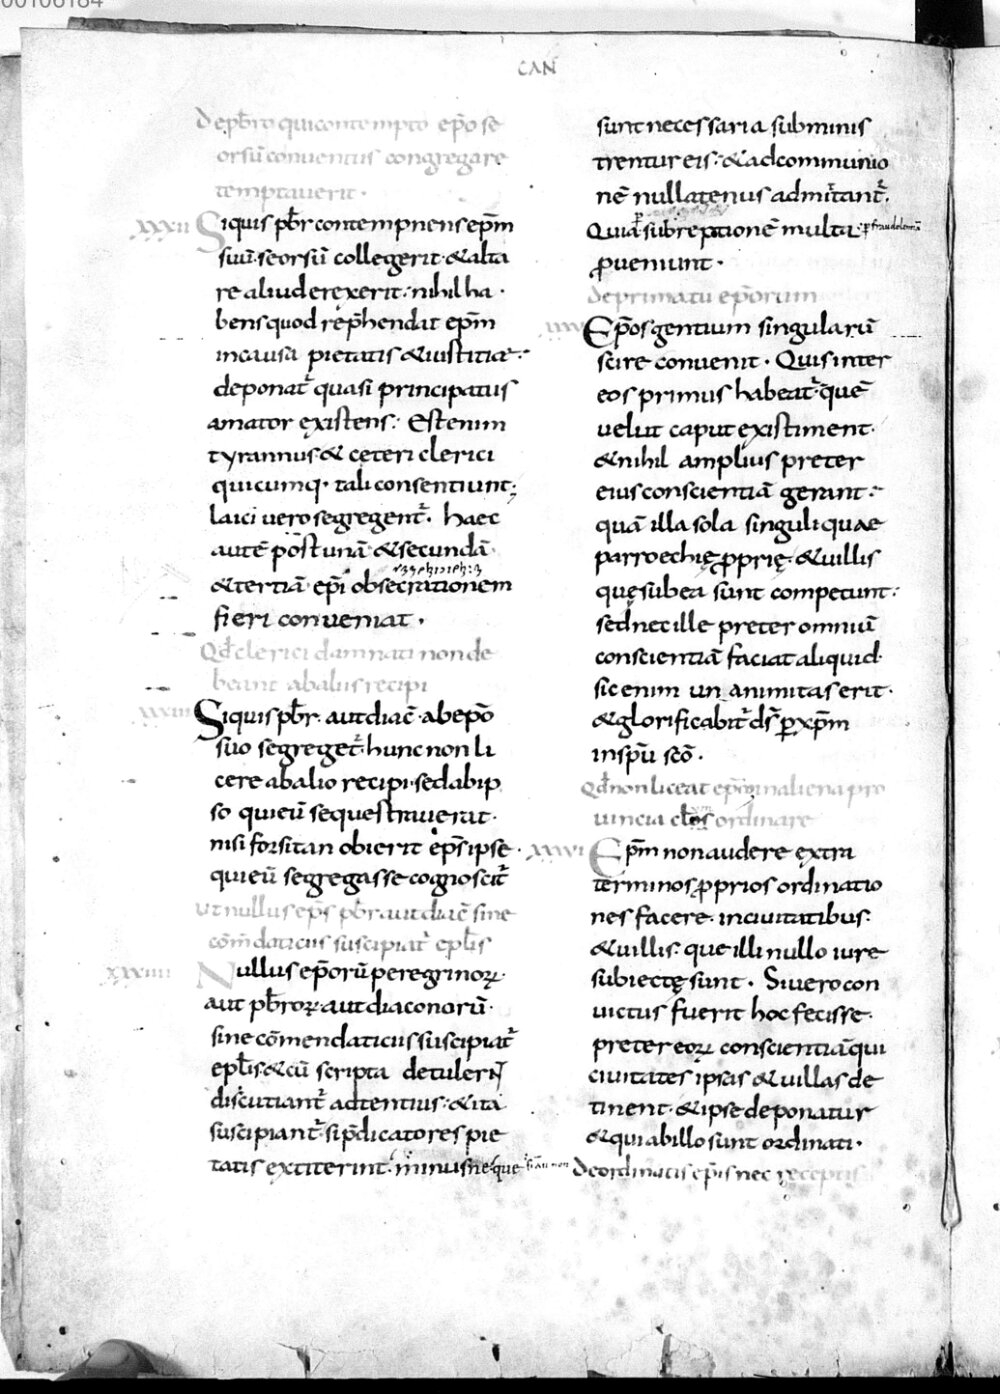 00106184
CAN̄
De pb̄ro qui contempto ep̄o se
orsū conuentus congregare
temptauerit ·
XXXII Siquis pb̄r contempnens ep̄m
suū · seorsū collegerit · & alta
re aliud erexerit · nihil ha ·
bens quod rep̄hendat ep̄m
in causa pietatis & iustitiae ·
deponat̄ quasi principatus
amator existens · Est enim
tyrannus & ceteri clerici
quicumq · tali consentiunt ;
laici uero segregent̄ · haec
autē post unā & secundā
& tertiā ep̄i obsecrationem
fieri conueniat ·
Qd̄ clerici damnati non de
beant ab aliis recipi
XXXIII Siquis pb̄r · aut diac̄ · ab ep̄o
suo segreget̄ · hunc non li
cere ab alio recipi · sed ab ip
so qui eū sequestrauerat ·
nisi forsitan obierit ep̄s ipse ·
qui eū segregasse cognoscit̄
Ut nullus ep̄s pb̄r aut diac̄ sine
cōm̄daticiis suscipiat̄ epl̄is
XXXIIII Nullus ep̄orū peregrinoꝝ ·
aut pb̄roꝝ · aut diaconorū ·
sine cōmendaticiis suscipiat̄
epl̄is & cū scripta detulerint
discutiant̄ adtentius · & ita
suscipiant̄ · si p̄dicatores pie
tatis extiterint · minus neque si aut non
sunt necessaria subminis
trentur eis · & ad communio
nē nullatenus admittant̄ ·
Quia ꝑ subreptionē multa ꝑ fraudolentiā
ꝓueniunt ·
de primatu ep̄orum
XXXV Ep̄os gentium singularū
scire conuenit · Quis inter
eos primus habeat̄ · quē
uelut caput existiment ·
& nihil amplius preter
eius conscientiā gerant ·
quā illa sola singuli quae
parroechię ꝓprię · & uillis
quę sub ea sunt competunt ·
sed nec ille preter omniū
conscientiā faciat aliquid ·
sic enim unanimitas erit ·
& glorificabit̄ d̄s ꝑ xp̄m
in sp̄u sc̄o ·
Qd̄ non liceat ep̄o in aliena pro
uincia cl̄os ordinare
XXXVI Ep̄m non audere extra
terminos ꝓprios ordinatio
nes facere · in ciuitatibus ·
& uillis · que illi nullo iure
subiectę sunt · Si uero con
uictus fuerit hoc fecisse ·
preter eoꝝ conscientiā qui
ciuitates ipsas & uillas de
tinent · & ipse deponatur
& qui ab illo sunt ordinati ·
De ordinatis ep̄is nec receptis